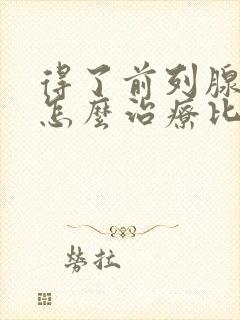 得了前列腺
怎麼治療比
勞拉